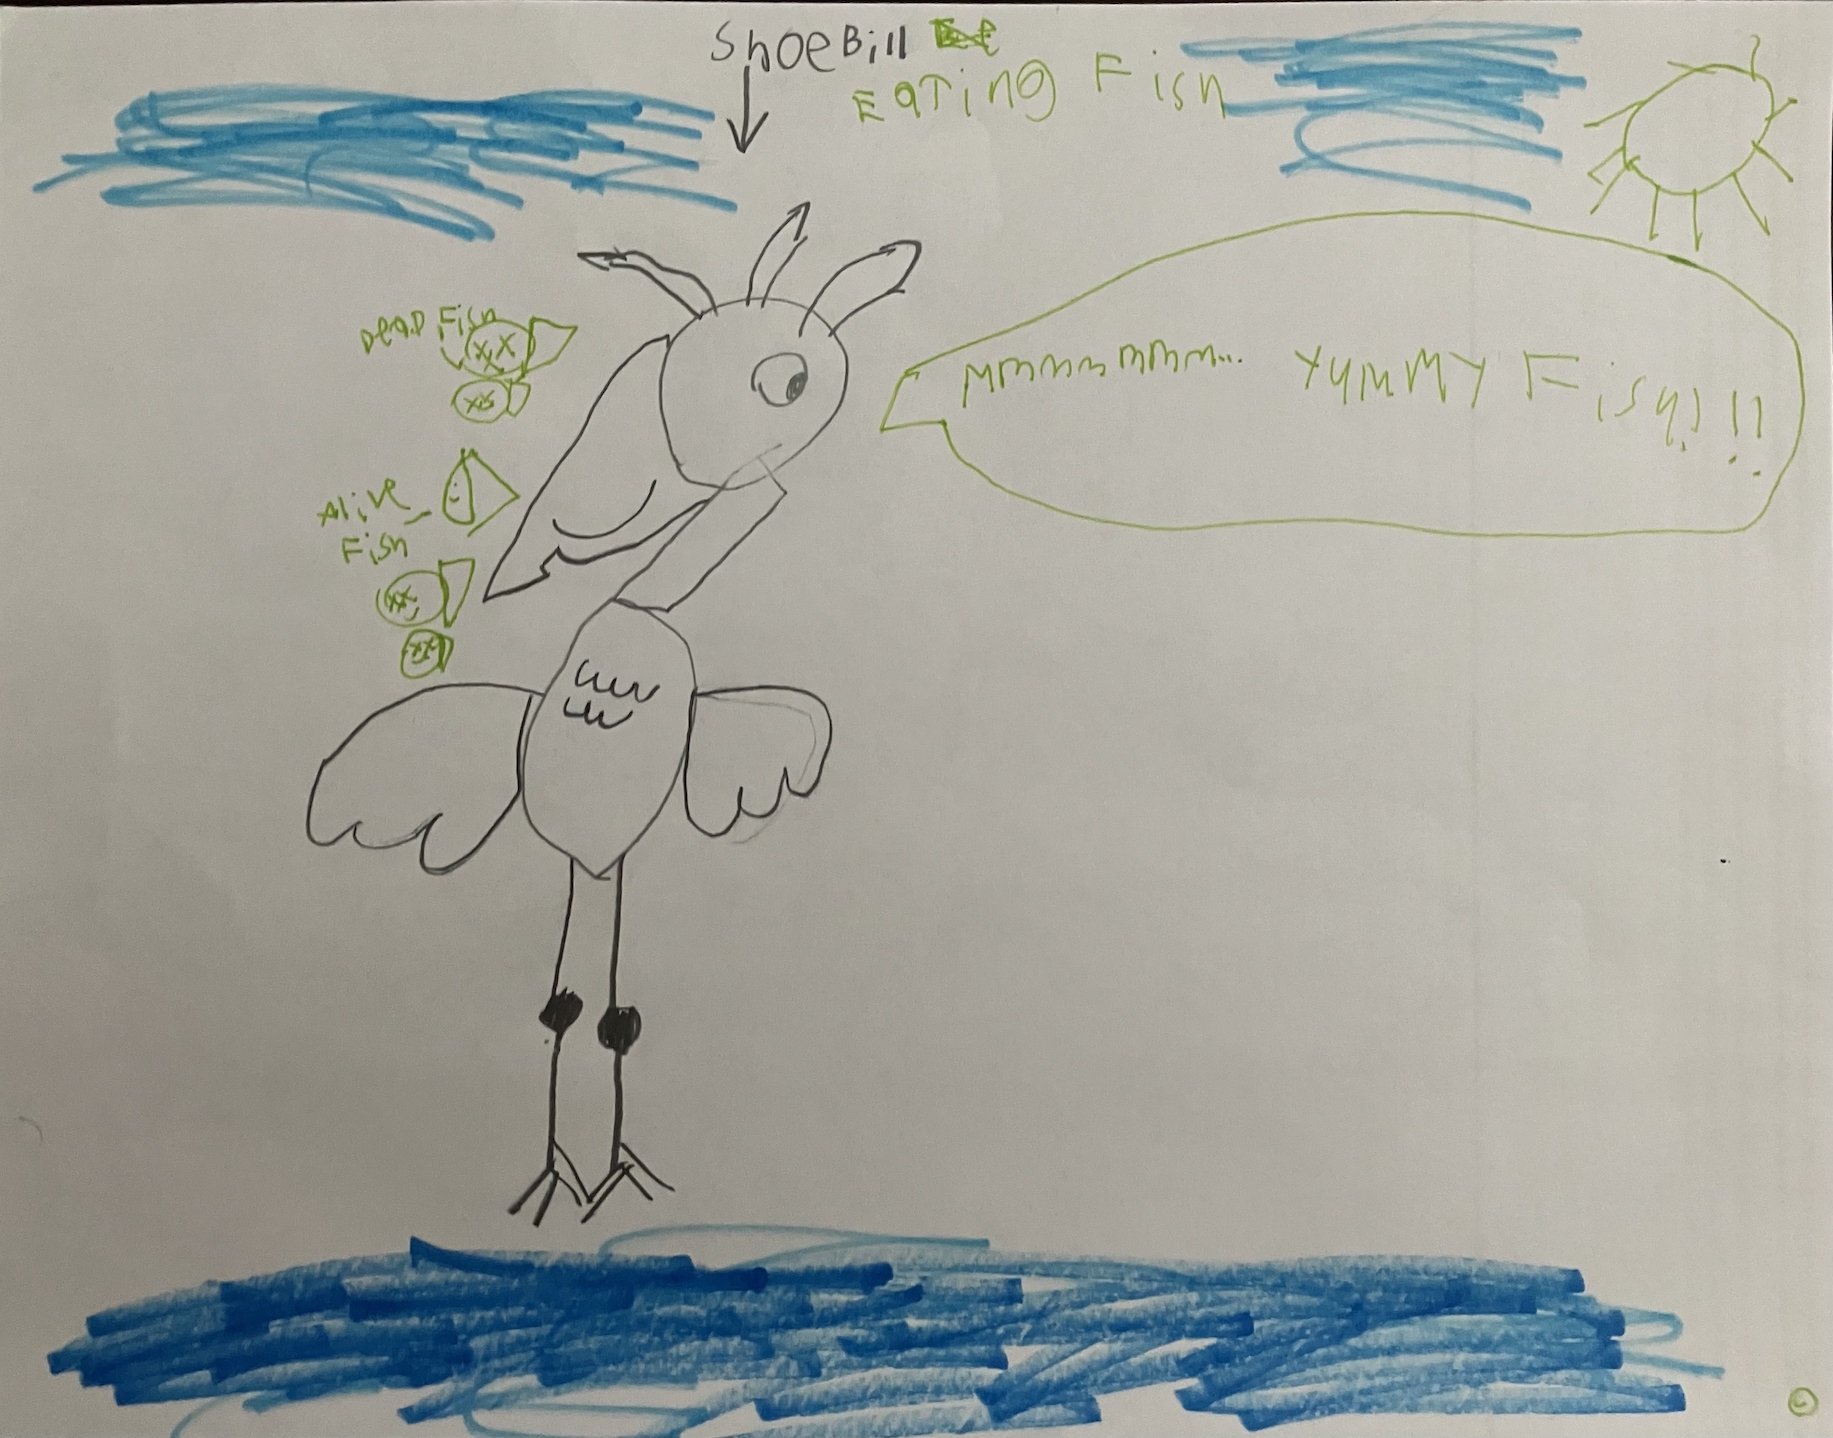 ShoeBill
EATing Fish
Dead Fish
Alive
Fish
Mmmmmmmm... YummY Fish!!!